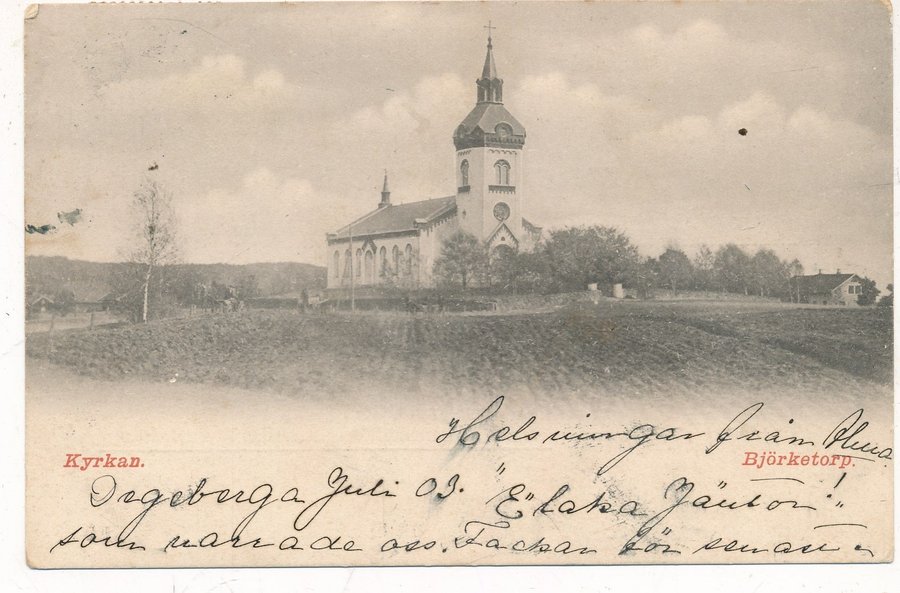 Helsningar från Alma
Kyrkan.
Björketorp.
Degeberga Juli 03. "Elaka Jänton!"
som narrade oss. Tackar för senast